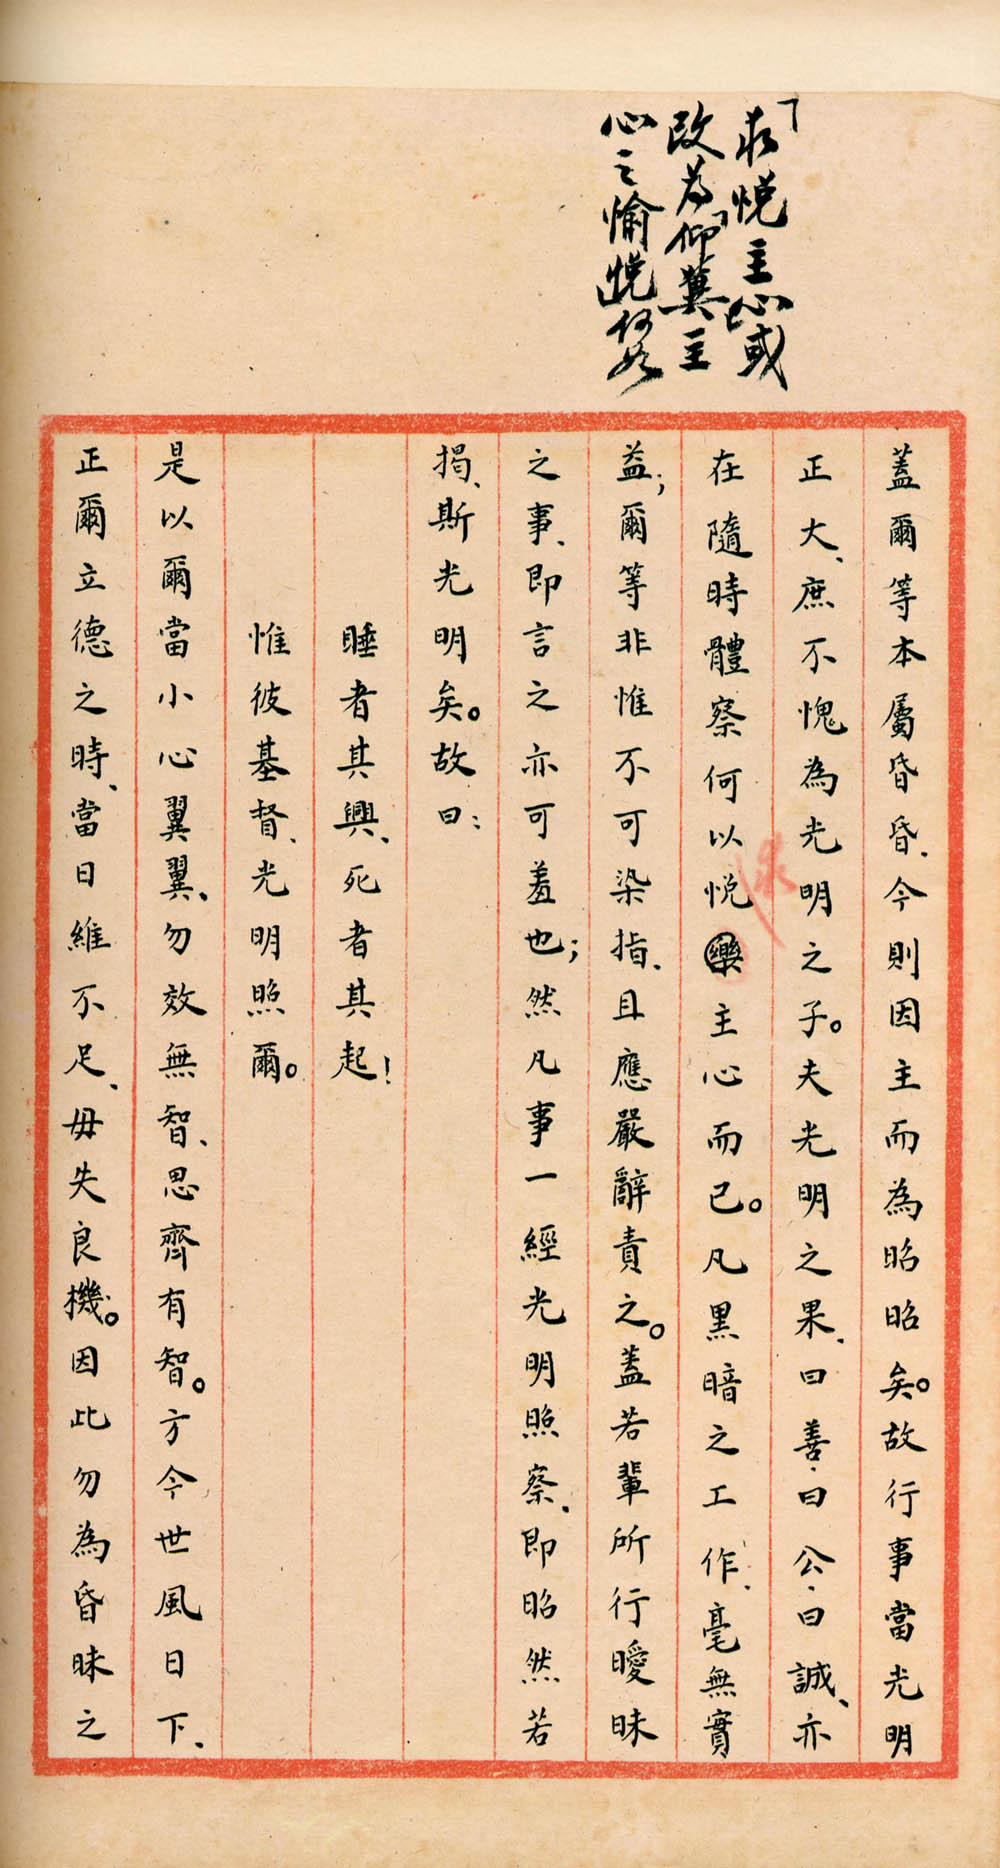 「求悅主心或
改為「仰冀主
心之愉悅」何如
蓋爾等本屬昏昏、今則因主而為昭昭矣。故行事當光明
正大、庶不愧為光明之子。夫光明之果、曰善、曰公、曰誠、亦
在隨時體察何以悅樂主心而已。凡黑暗之工作、毫無實
益；爾等非惟不可染指、且應嚴辭責之。蓋若輩所行曖昧
之事、即言之亦可羞也；然凡事一經光明照察、即昭然若
揭、斯光明矣。故曰：
睡者其興、死者其起！
惟彼基督、光明照爾。
是以爾當小心翼翼、勿效無智、思齊有智。方今世風日下、
正爾立德之時、當日維不足、毋失良機。因此勿為昏昧之